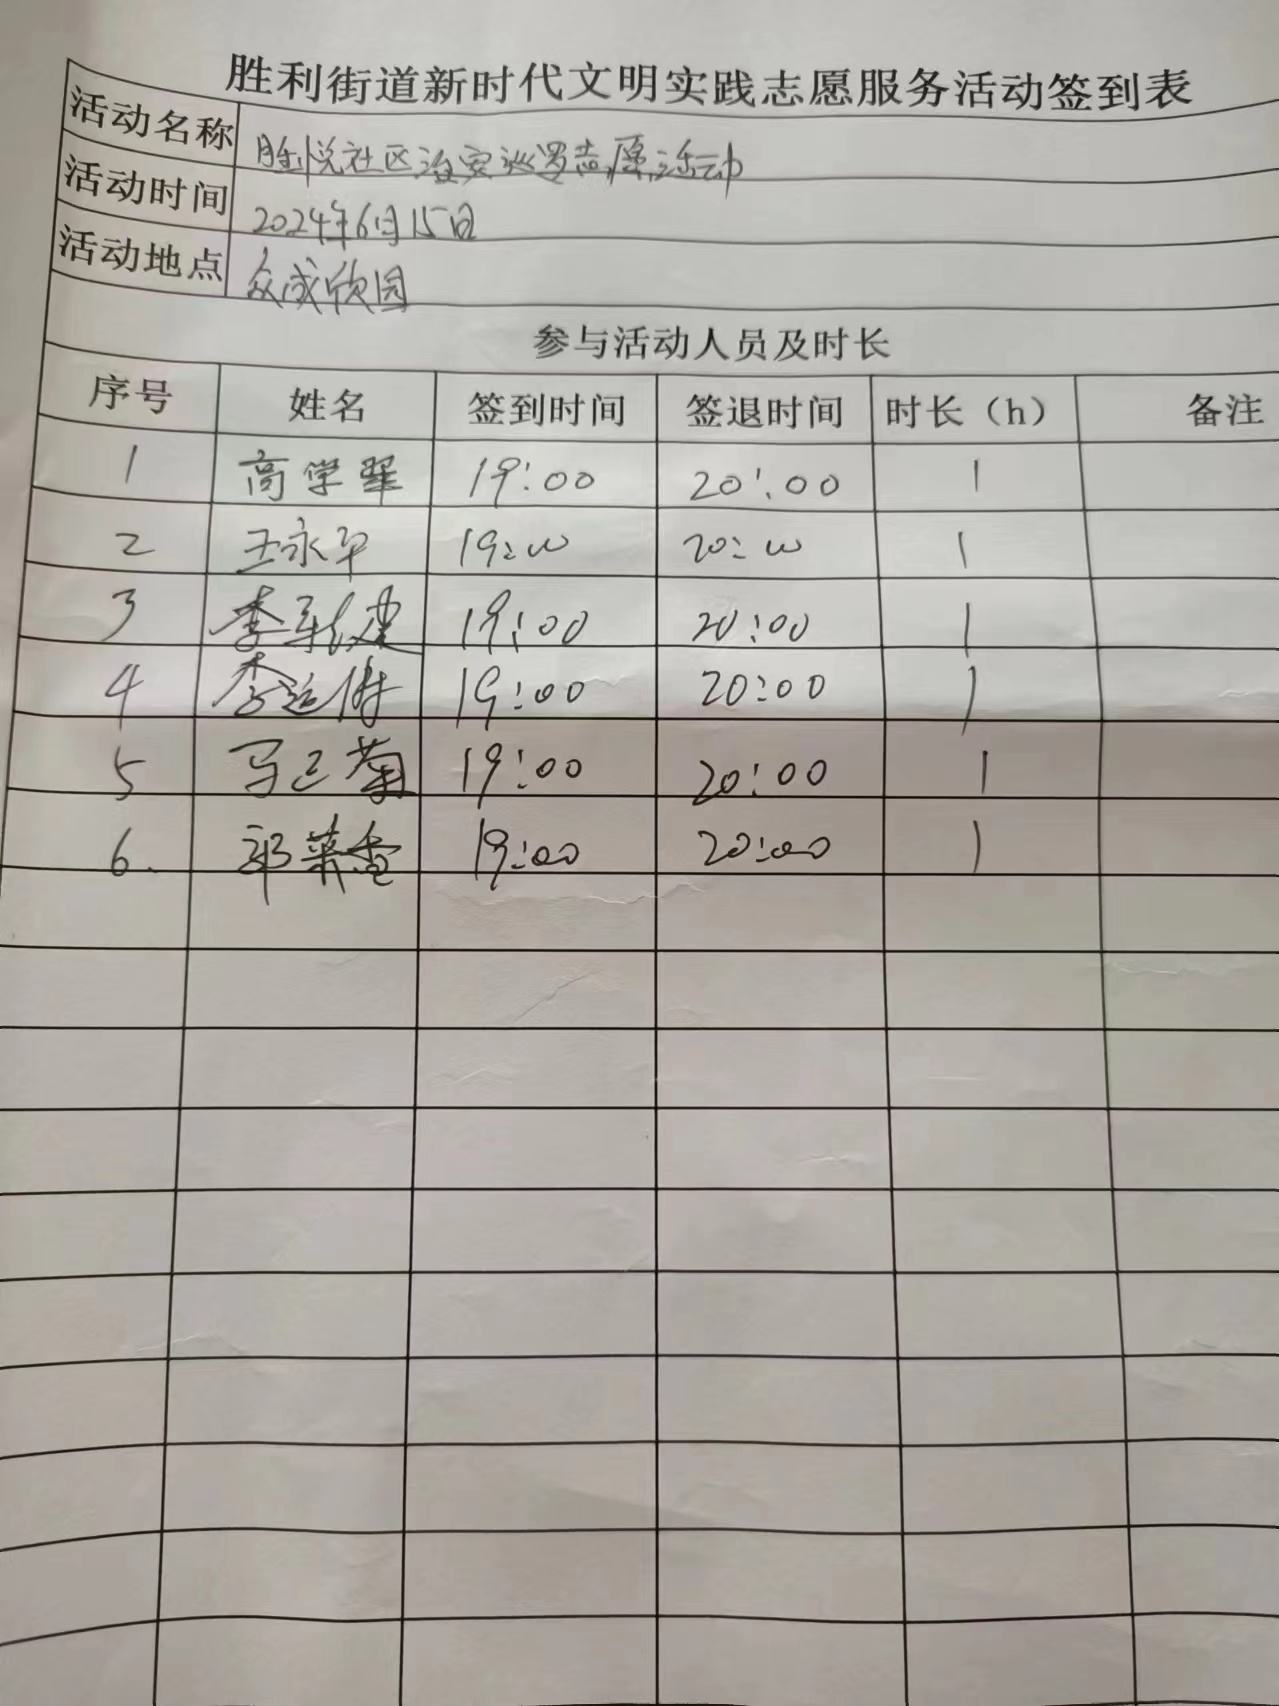 胜利街道新时代文明实践志愿服务活动签到表
活动名称 胜悦社区治安巡逻志愿活动
活动时间 2024年6月15日
活动地点 众成欣园
参与活动人员及时长
序号 姓名 签到时间 签退时间 时长（h） 备注
1 高学翠 19:00 20:00 1
2 王永平 19:00 20:00 1
3 李新建 19:00 20:00 1
4 李 19:00 20:00 1
5 马 菊 19:00 20:00 1
6. 郭 香 19:00 20:00 1